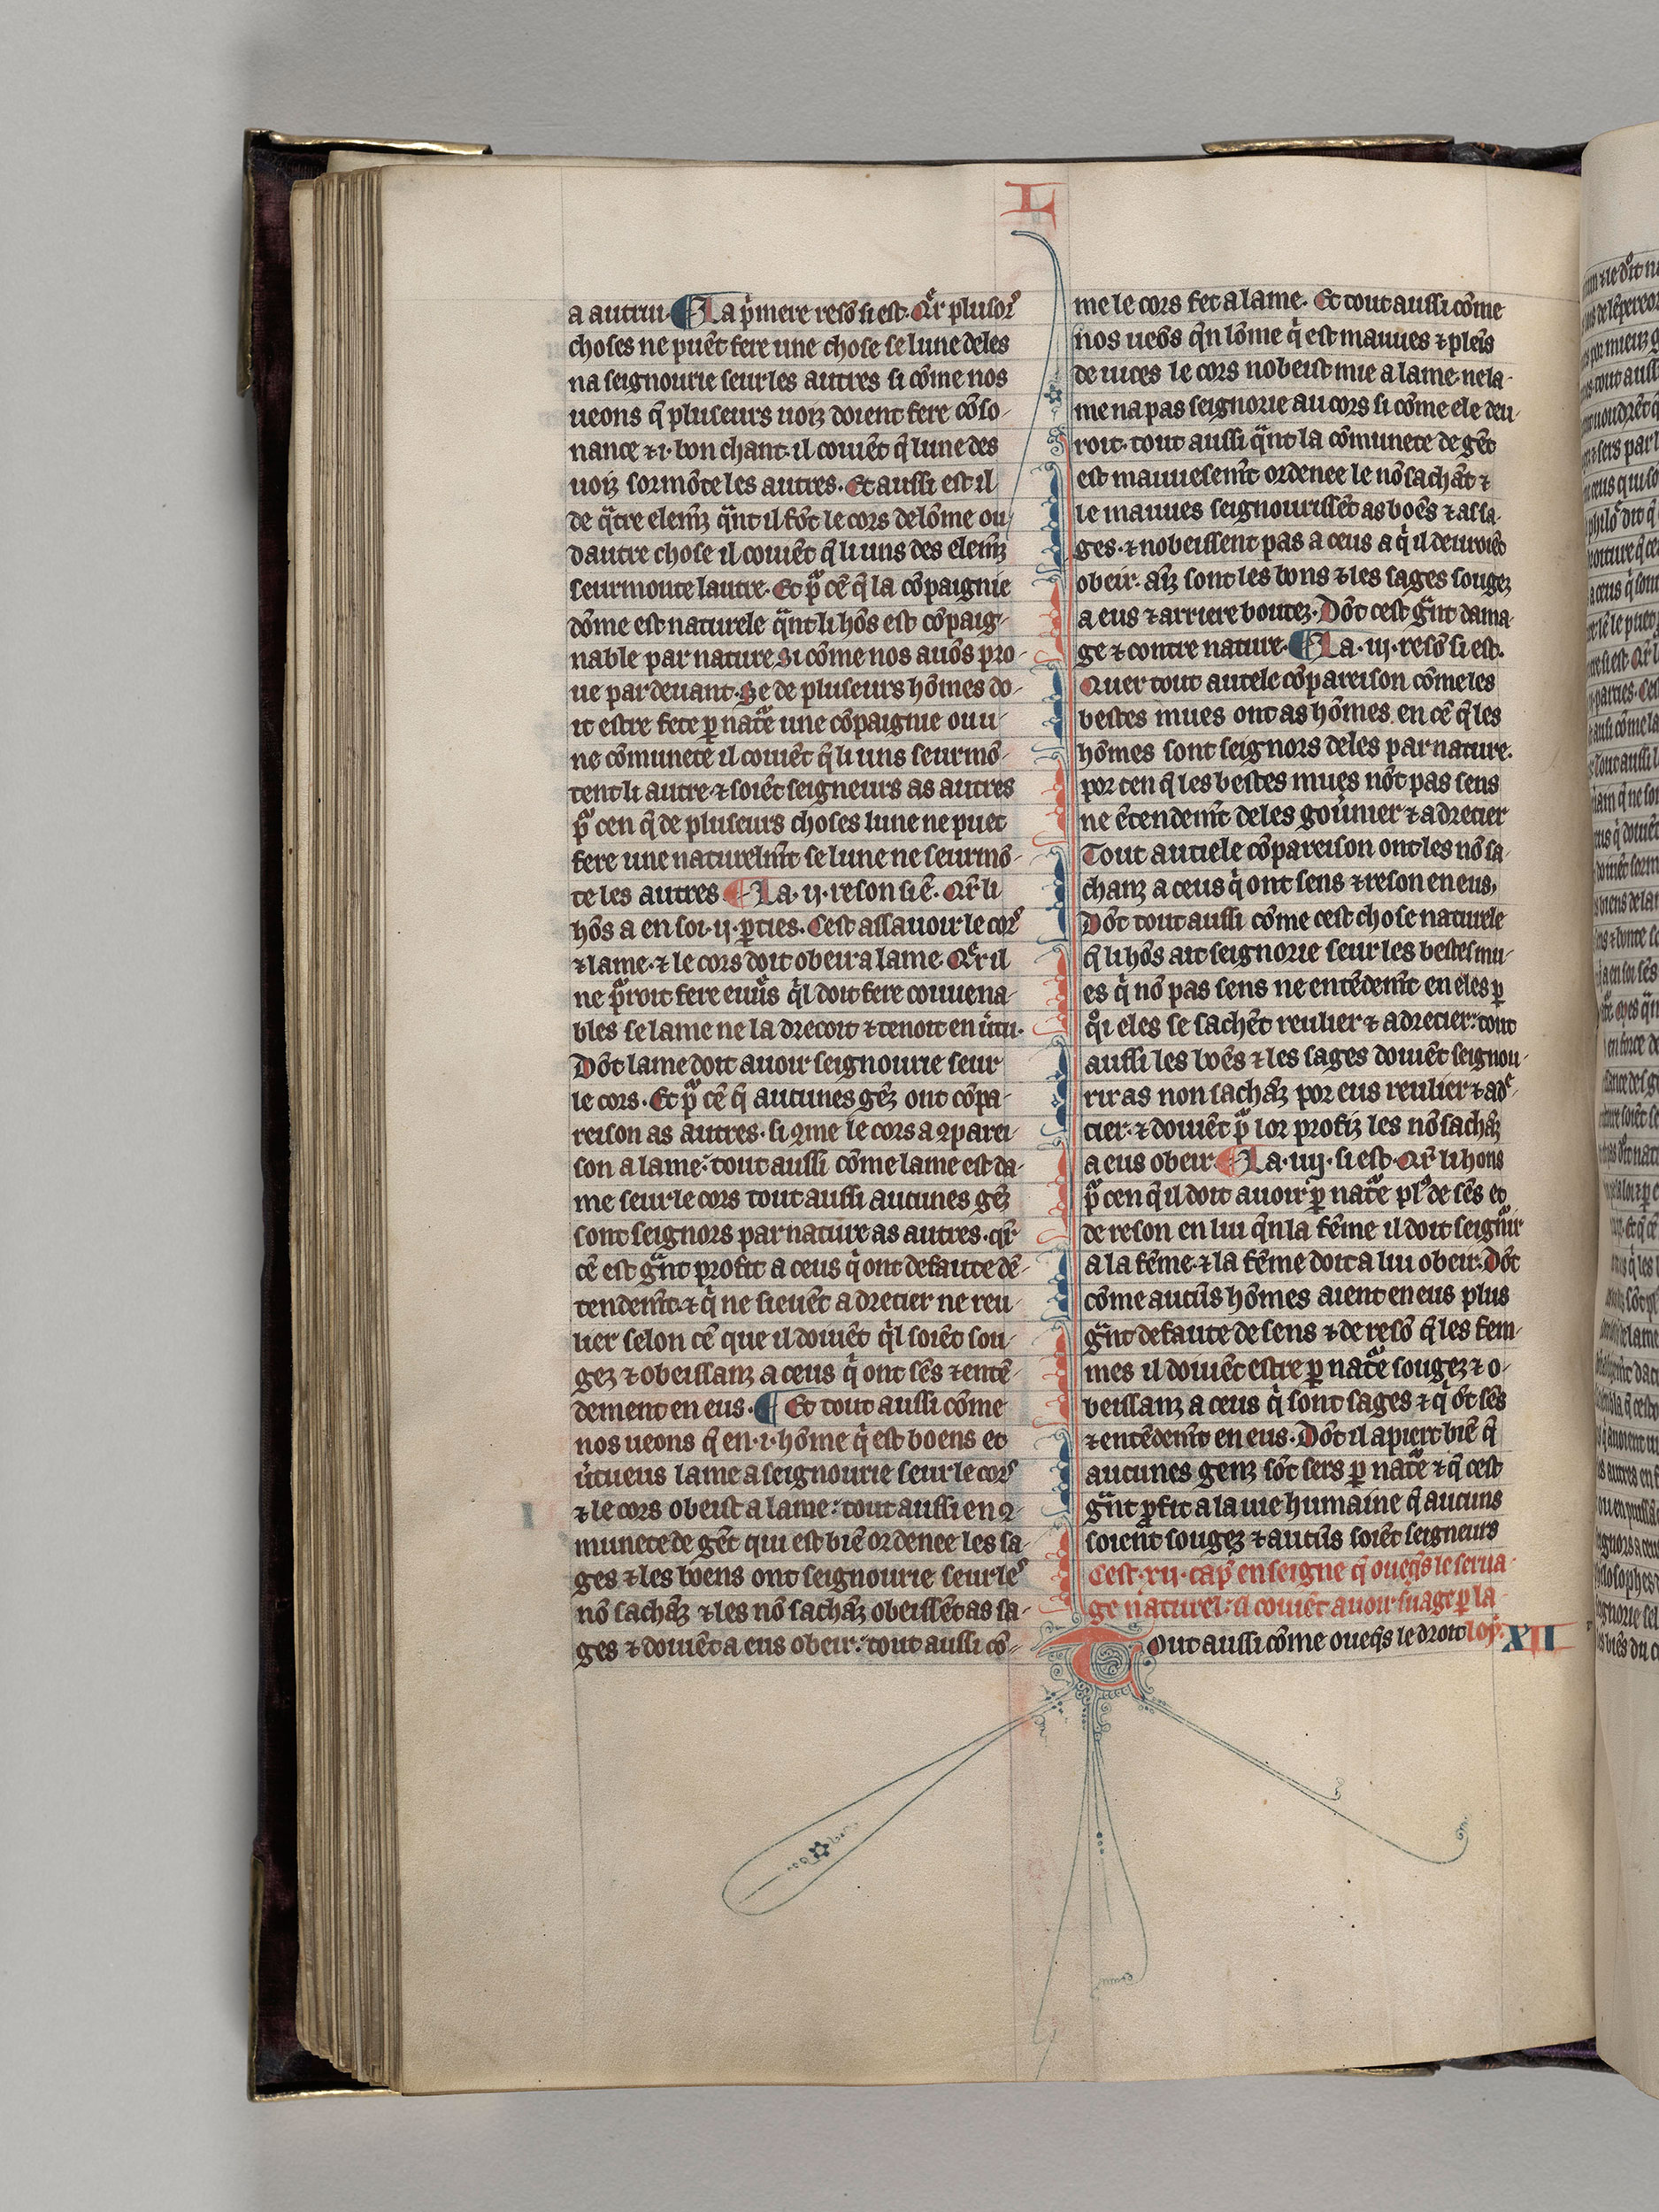 L
a autrui. ¶ La p̍mere resō si est. Qr̄ plusors
choses ne puēt fere une chose se lune deles
na seignourie seur les autres si cōme nos
ueons q̄ pluseurs uoiz doient fere cōso-
nance ⁊ .i. bon chant. il couiēt q̄ lune des
uoiz sormōte les autres. Et aussi est il
de qͣtre elemz̄ qͣnt il fōt le cors delōme ou
dautre chose il couiēt q̄ li uns des elemz̄
seurmonte lautre. Et pͣ cē q̄ la cōpaignie
dōme est naturele qͣnt li hōs est cōpaig-
nable par nature si cōme nos auōs pro-
ue par deuant. Se de pluseurs hōmes do-
it estre fete ꝑ natͣe une cōpaignie ou u-
ne cōmunete il couiēt q̄ li uns seurmō-
tent li autre ⁊ soiēt seigneurs as autres
pͣ cen q̄ de pluseurs choses lune ne puet
fere une naturelm̄t se lune ne seurmō-
te les autres ¶ La .ij. reson si ē. Qr̄ li
hōs a en soi .ij. ꝑties. Cest assauoir le cors
⁊ lame. ⁊ le cors doit obeir a lame. Qr̄ il
ne pͣroit fere euures q̍l doit fere couuena-
bles se lame ne la drecoit ⁊ tenoit en u̍tu.
Dōt lame doit auoir seignourie seur
le cors. Et pͣ cē q̄ aucunes gēz ont cōpa-
reison as autres. si ꝯme le cors a ꝯparei-
son a lame. tout aussi cōme lame est da-
me seur le cors tout aussi aucunes gēz
sont seignors par nature as autres. qr̄
cē est gͣnt profit a ceus q̍ ont defaute dē-
tendem̄t. ⁊ q̍ ne sieuēt a drecier ne reu-
lier selon cē que il doiuēt q̍l soiēt sou-
gez ⁊ obeissanz a ceus q̍ ont sēs ⁊ entē-
dement en eus. ¶ Et tout aussi cōme
nos ueons q̄ en .i. hōme q̍ est boens et
u̍tueus lame a seignourie seur le cors
⁊ le cors obeist a lame. tout aussi en ꝯ-
munete de gēt qui est biē ordenee les sa-
ges ⁊ les boens ont seignourie seur les
nō sachāz ⁊ les nō sachāz obeissēt as sa-
ges ⁊ doiuēt a eus obeir. tout aussi cō-
me le cors fet a lame. Et tout aussi cōme
nos ueōs q̄n lōme q̍ est mauues ⁊ pleīs
de uices le cors nobeist mie a lame ne la-
me na pas seignorie au cors si cōme ele deu-
roit. tout aussi qͣnt la cōmunete de gēt
est mauuesem̄t ordenee le nō sachāt ⁊
le mauues seignourissēt as boēs ⁊ as sa-
ges. ⁊ nobeissent pas a ceus a q̍ il deuroiēt
obeir. aīz sont les bons ⁊ les sages sougez
a eus ⁊ arriere boutez. Dōt cest gͣnt dama-
ge ⁊ contre nature. ¶ La .iij. resō si est.
Quer tout autele cōpareison cōme les
bestes mues ont as hōmes en cē q̄ les
hōmes sont seignors deles par nature.
por cen q̄ les bestes mues nōt pas sens
ne ētendem̄t deles gou̍ner ⁊ adrecier
Tout autiele cōpareison ont les nō sa-
chanz a ceus q̍ ont sens ⁊ reson en eus,
Dōt tout aussi cōme cest chose naturele
q̄ li hōs ait seignorie seur les bestes mu-
es q̍ nō pas sens ne entēdem̄t en eles ꝑ
qͦi eles se sachēt reulier ⁊ adrecier. tout
aussi les boēs ⁊ les sages doiuēt seignou-
rir as non sachāz por eus reulier ⁊ adͤ-
cier. ⁊ doiuēt pͣ lor profiz les nō sachāz
a eus obeir ¶ La .iiij. si est. Qr̄ li hons
pͣ cen q̄ il doit auoir ꝑ natͣe plꝰ de sēs et
de reson en lui q̄n la fēme il doit seigͣnir
a la fēme. ⁊ la fēme doit a lui obeir. Dōt
cōme aucūs hōmes aient en eus plus
gͣnt defaute de sens ⁊ de resō q̄ les fem-
mes il doiuēt estre ꝑ natͣe sougez ⁊ o-
beissanz a ceus q̍ sont sages ⁊ q̍ ōt sēs
⁊ entēdem̄t en eus. Dōt il apiert biē q̄
aucunes genz sōt sers ꝑ natͣe ⁊ q̄ cest
gͣnt ꝓfit a la uie humaine q̄ aucuns
soient sougez ⁊ aucūs soiēt seigneurs
Cest .xij. cap̄ enseigne q̄ oueq̄s le serua-
ge naturel. il couiēt auoir suage ꝑ la
Out aussi cōme oueq̄s le droit lop̄.
XII